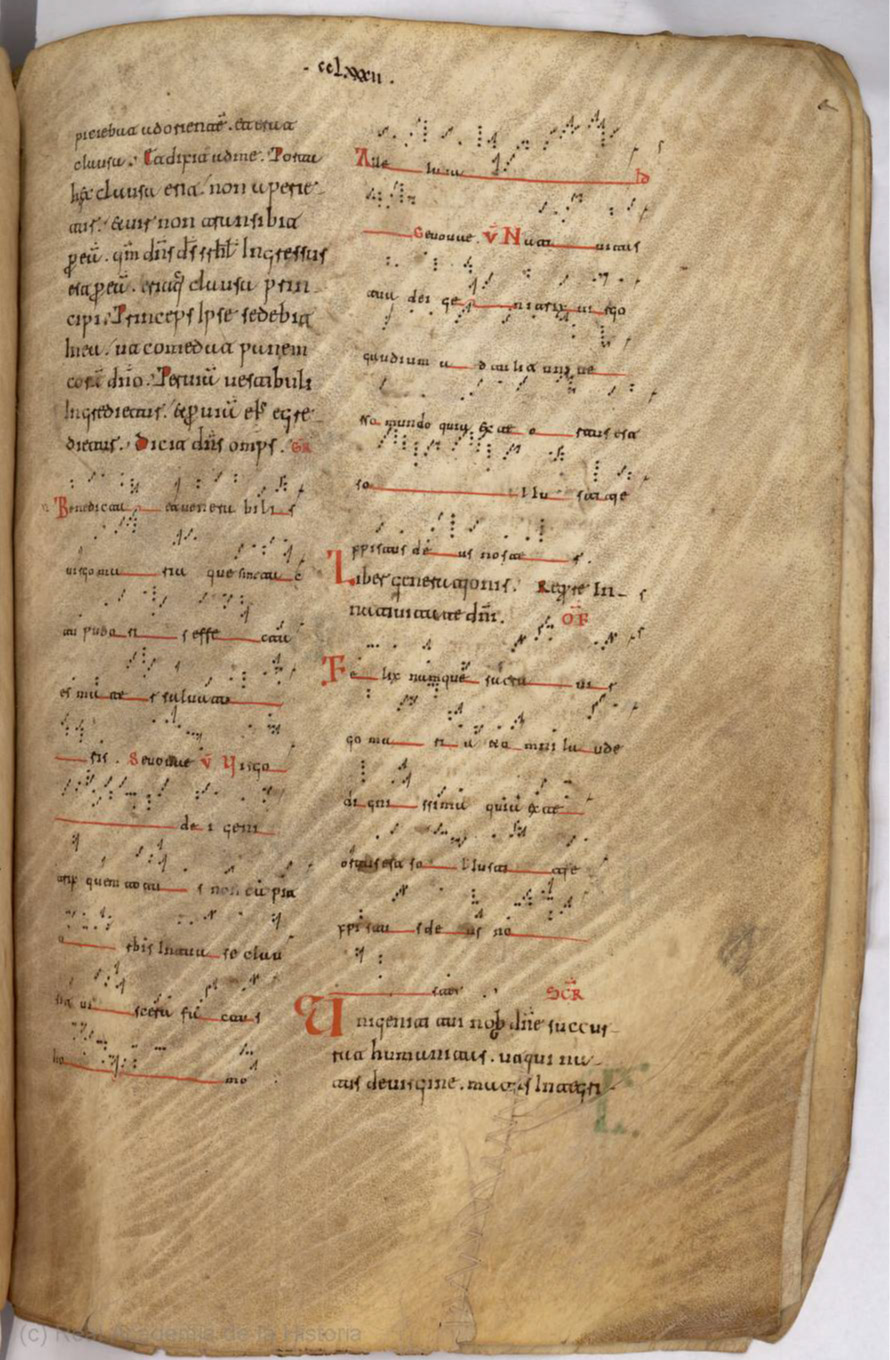 · cclxxxii ·
piciebat ad orientē. & erat
clausa. & dixit ad me. Porta
hec clausa erit. non aperie-
tur. & uir non transibit
p eū. qm̄ dn̄s ds̄ isrl̄ Ingressus
est p eū. eritq̨ clausa prin-
cipi. Princeps Ipse sedebit
In ea. ut comedat panem
corā dn̄o. Per uiā uestibuli
Ingredietur. & p uiā eiꝰ egre-
dietur. Dicit dn̄s omp̄s. GR
Benedicta et uenera bilis
uirgo ma ria que sine ta c
tu pudo ri s esse cta
es ma te r saluato
ris. Seuouae v̄ Uirgo
de i geni
trix quem totu s non capit
orbis In tua se clau
sit ui scera fa ctus
ho mo
Alle luia Id
Seuouae. v̄ Natiuitas
tua dei ge nitrix uirgo
gaudium a d nuntiauit uniue
rso mundo quia ex te o rtus est
so l Iu stitie
xpistus de us noste r.
Liber generationis. Reqre In
natiuitate dn̄i. OF
Fe lix namque sacra uir
go ma ri a et omni la ude
digni ssima quia ex te
ortus est so l Iustiti ae
xpistu s de us no
ster. SCR
Unigeniti tui nob dn̄e succur-
rat humanitas. ut qui na-
tus de uirgine. matris Integri